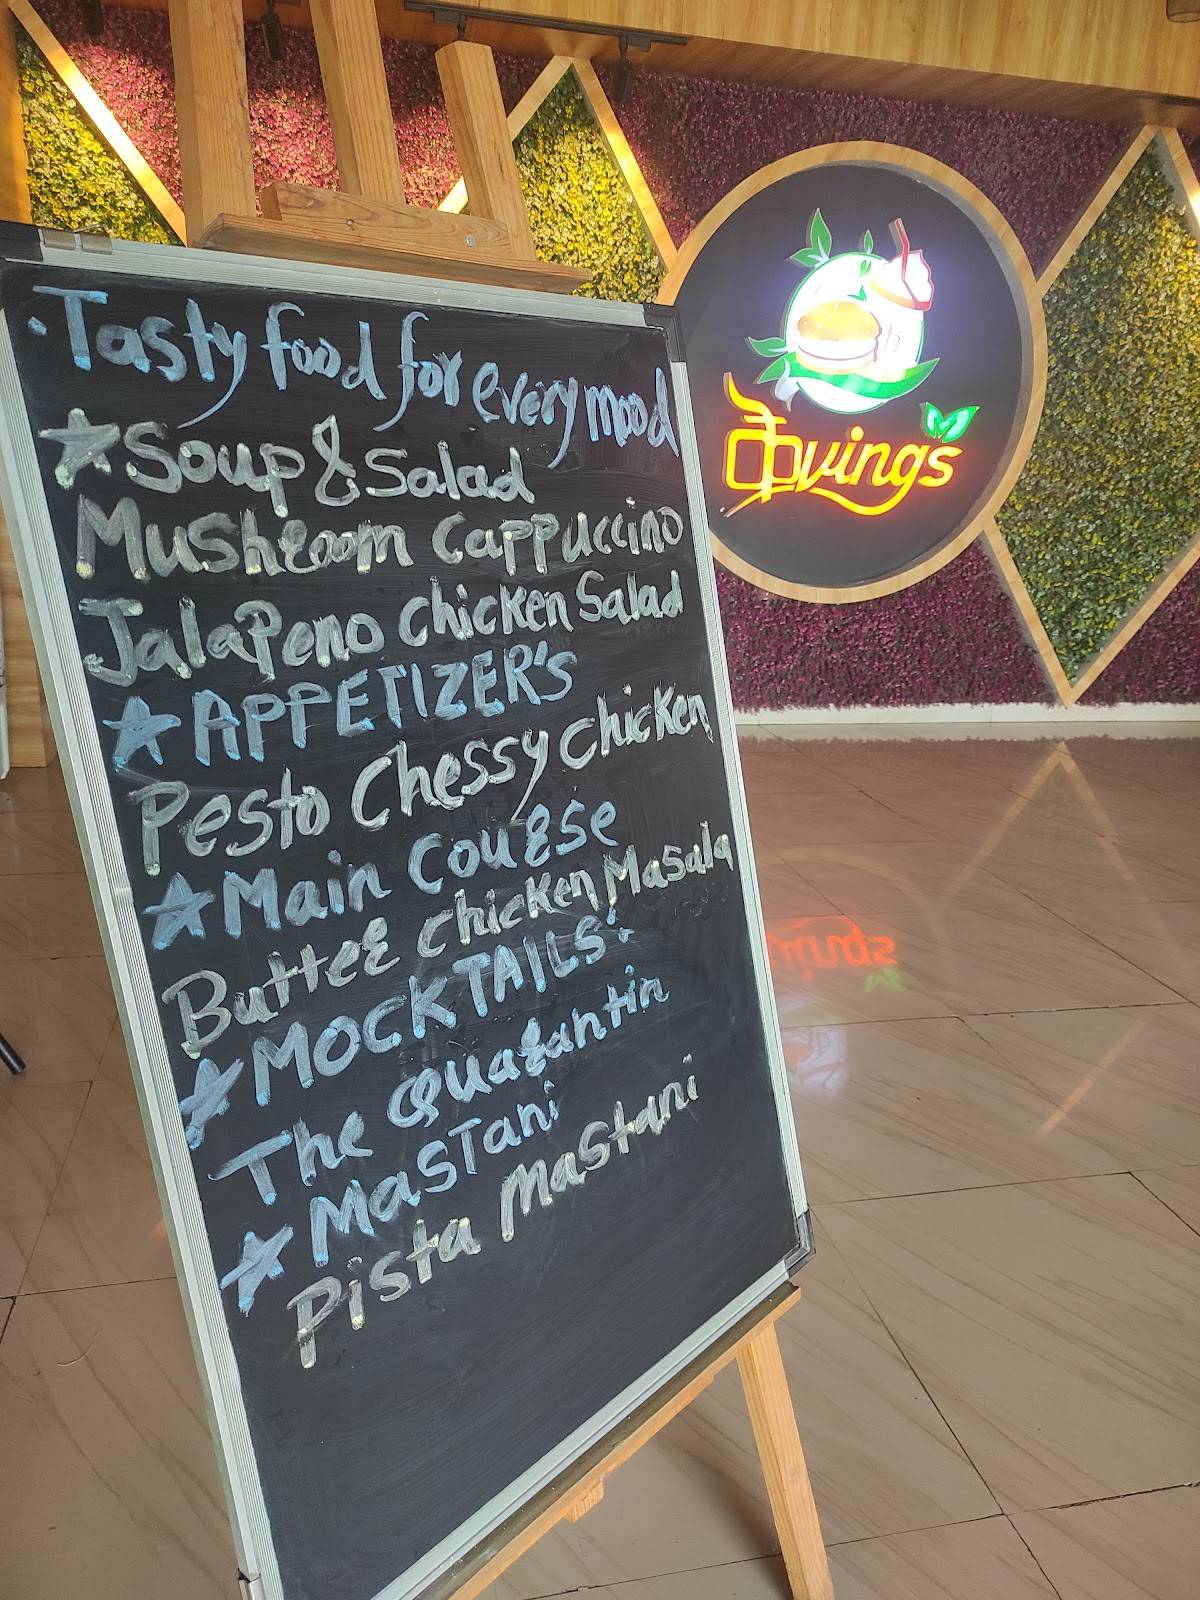 Tasty food for every mood
Soup & Salad
Mushroom Cappuccino
Jalapeno Chicken Salad
APPETIZER'S
Pesto Chessy Chicken
Main Course
Butter Chicken Masala
MOCKTAILS
The Quarantin
Mastani
Pista Mastani
क्रvings